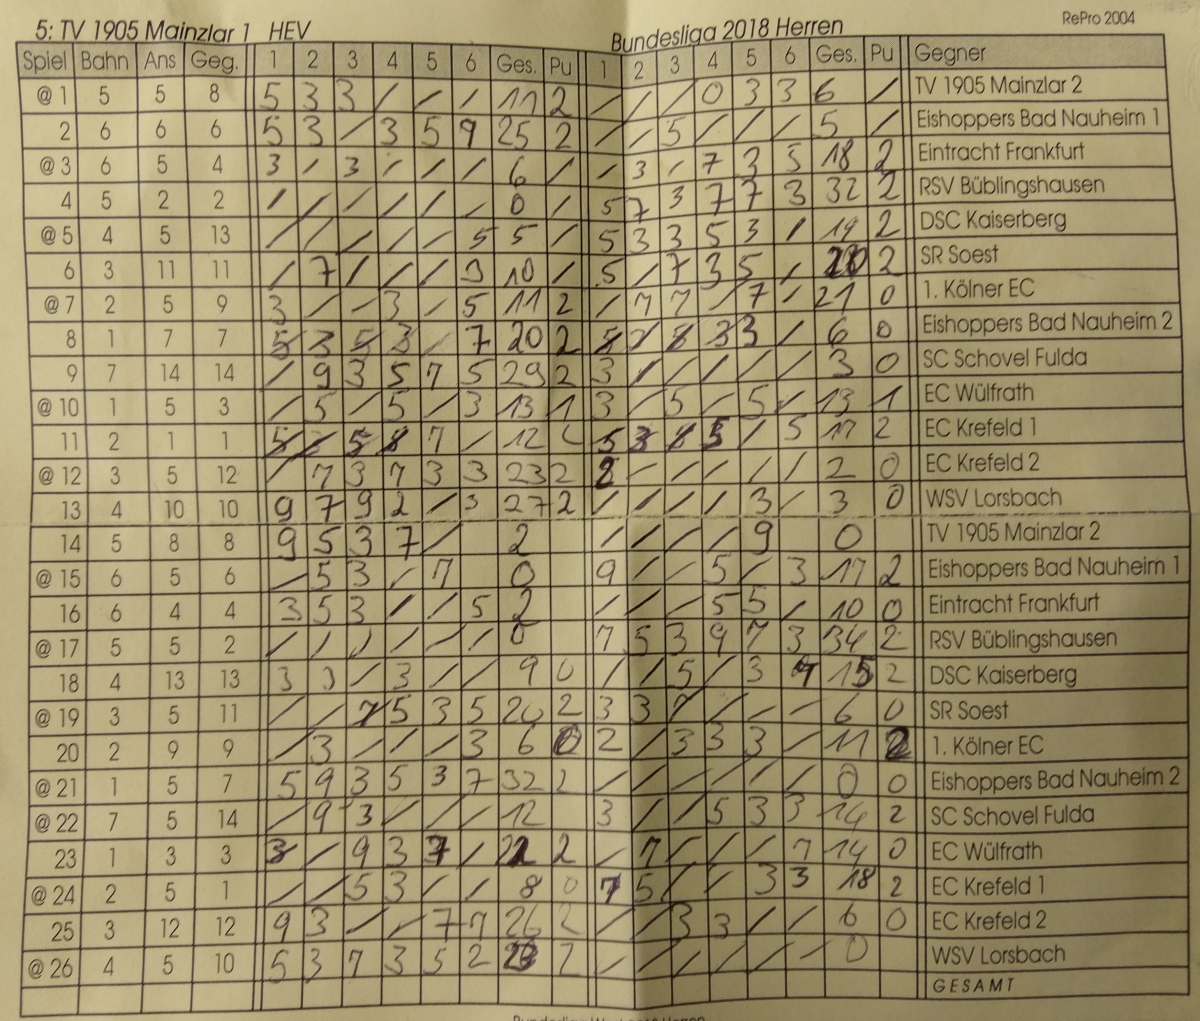 5: TV 1905 Mainzlar 1 HEV Bundesliga 2018 Herren RePro 2004
Spiel Bahn Ans Geg. 1 2 3 4 5 6 Ges. Pu 1 2 3 4 5 6 Ges. Pu Gegner
@ 1 5 5 8 5 3 3 / / / 11 2 / / / 0 3 3 6 / TV 1905 Mainzlar 2
2 6 6 6 5 3 / 3 5 9 25 2 / / 5 / / / 5 / Eishoppers Bad Nauheim 1
@ 3 6 5 4 3 / 3 / / / 6 / / 3 / 7 3 5 18 2 Eintracht Frankfurt
4 5 2 2 / / / / / / 0 / 5 7 3 7 7 3 32 2 RSV Büblingshausen
@ 5 4 5 13 / / / / / 5 5 / 5 3 3 5 3 / 19 2 DSC Kaiserberg
6 3 11 11 / 7 / / / 3 10 / 5 / 7 3 5 / 20 2 SR Soest
@ 7 2 5 9 3 / / 3 / 5 11 2 / 7 7 / 7 / 21 0 1. Kölner EC
8 1 7 7 5 3 5 3 / 7 20 2 3 3 / 6 0 Eishoppers Bad Nauheim 2
9 7 14 14 / 9 3 5 7 5 29 2 3 / / / / / 3 0 SC Schovel Fulda
@ 10 1 5 3 / 5 / 5 / 3 13 1 3 / 5 / 5 / 13 1 EC Wülfrath
11 2 1 1 5 7 / 12 5 3 5 / 5 17 2 EC Krefeld 1
@ 12 3 5 12 / 7 3 7 3 3 23 2 2 / / / / / 2 0 EC Krefeld 2
13 4 10 10 9 7 9 2 / 3 27 2 / / / / 3 / 3 0 WSV Lorsbach
14 5 8 8 9 5 3 7 / 2 / / / / 9 0 TV 1905 Mainzlar 2
@ 15 6 5 6 / 5 3 / 7 0 9 / / 5 / 3 17 2 Eishoppers Bad Nauheim 1
16 6 4 4 3 5 3 / / 5 2 / / / 5 5 / 10 0 Eintracht Frankfurt
@ 17 5 5 2 / / / / / / 0 7 5 3 9 7 3 34 2 RSV Büblingshausen
18 4 13 13 3 3 / 3 / / 9 0 / / 5 / 3 15 2 DSC Kaiserberg
@ 19 3 5 11 / / 7 5 3 5 20 2 3 3 / / / / 6 0 SR Soest
20 2 9 9 / 3 / / / 3 6 0 2 / 3 3 3 / 11 2 1. Kölner EC
@ 21 1 5 7 5 9 3 5 3 7 32 2 / / / / / / 0 0 Eishoppers Bad Nauheim 2
@ 22 7 5 14 / 9 3 / / / 12 3 / / 5 3 3 14 2 SC Schovel Fulda
23 1 3 3 3 / 9 3 7 / 22 2 / 7 / / / 7 14 0 EC Wülfrath
@ 24 2 5 1 / / 5 3 / / 8 0 7 5 / / 3 3 18 2 EC Krefeld 1
25 3 12 12 9 3 / / 7 7 26 2 / / 3 3 / / 6 0 EC Krefeld 2
@ 26 4 5 10 5 3 7 3 5 2 2 / / / / / / 0 WSV Lorsbach
GESAMT